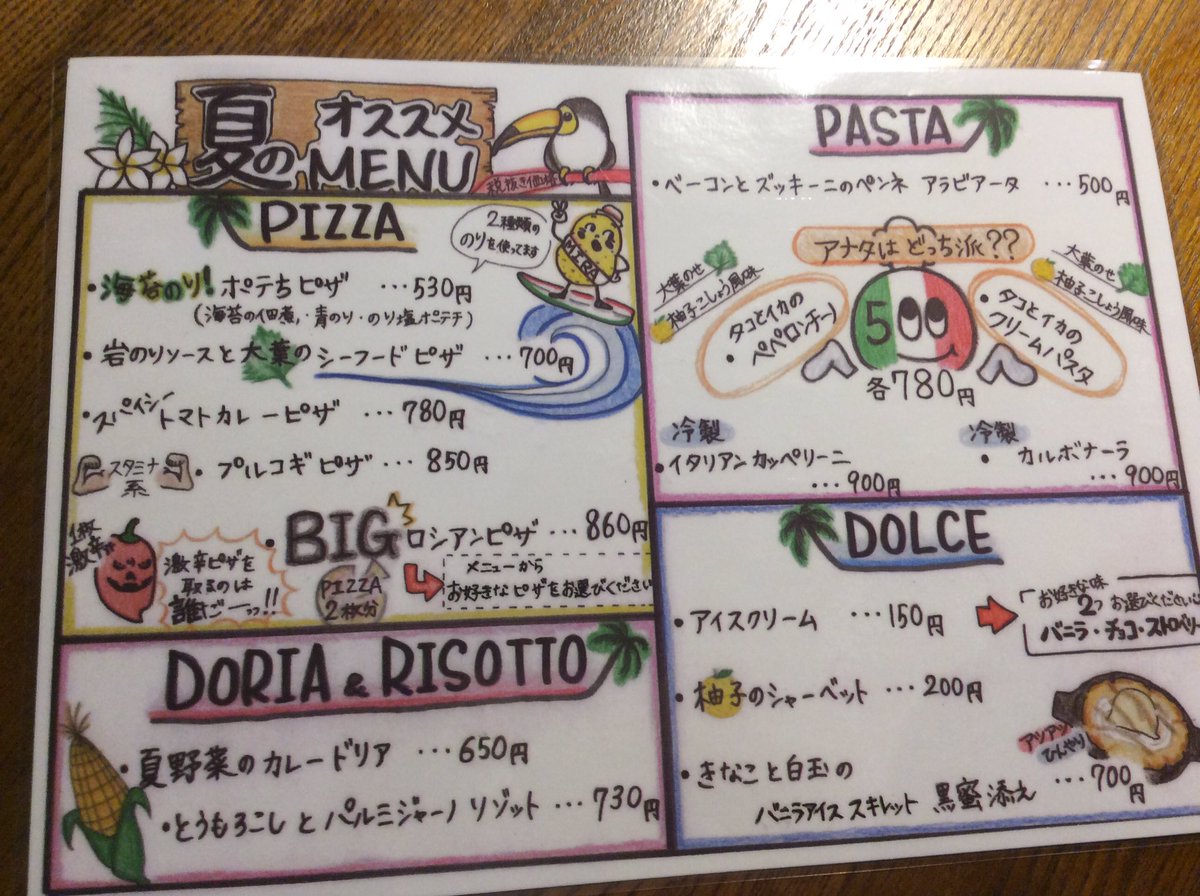 夏の オススメ
MENU
税抜き価格
PIZZA
2種類の
のりを使ってます
MIRA
・海苔のり! ポテちピザ …530円
(海苔の佃煮・青のり・のり塩ポテチ)
・岩のりソースと大葉のシーフードピザ …700円
・スパイシートマトカレーピザ …780円
スタミナ系
・プルコギピザ …850円
・BIG ロシアンピザ …860円
激辛
激辛ピザを
取るのは
誰だーっっ!!
PIZZA
2枚分
メニューから
お好きなピザをお選びください
DORIA & RISOTTO
・夏野菜のカレードリア …650円
・とうもろこしとパルミジャーノ リゾット …730円
PASTA
・ベーコンとズッキーニのペンネ アラビアータ …500円
アナタは どっち派??
大葉のせ
柚子こしょう風味
・タコとイカの
ペペロンチーノ
500
大葉のせ
柚子こしょう風味
・タコとイカの
クリームパスタ
各780円
冷製
・イタリアンカッペリーニ
…900円
冷製
・カルボナーラ
…900円
DOLCE
・アイスクリーム …150円
お好きな味
2つお選びください
バニラ・チョコ・ストロベリー
・柚子のシャーベット …200円
アツアツ
ひんやり
・きなこと白玉の
バニラアイス スキレット 黒蜜添え …700円